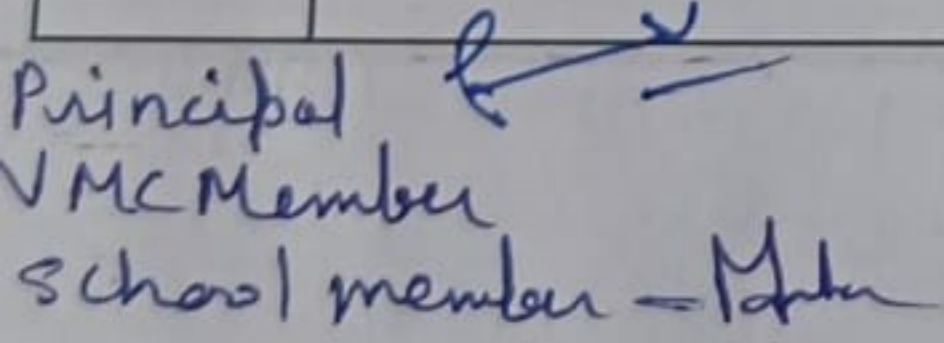 Principal
VMC Member
school member -